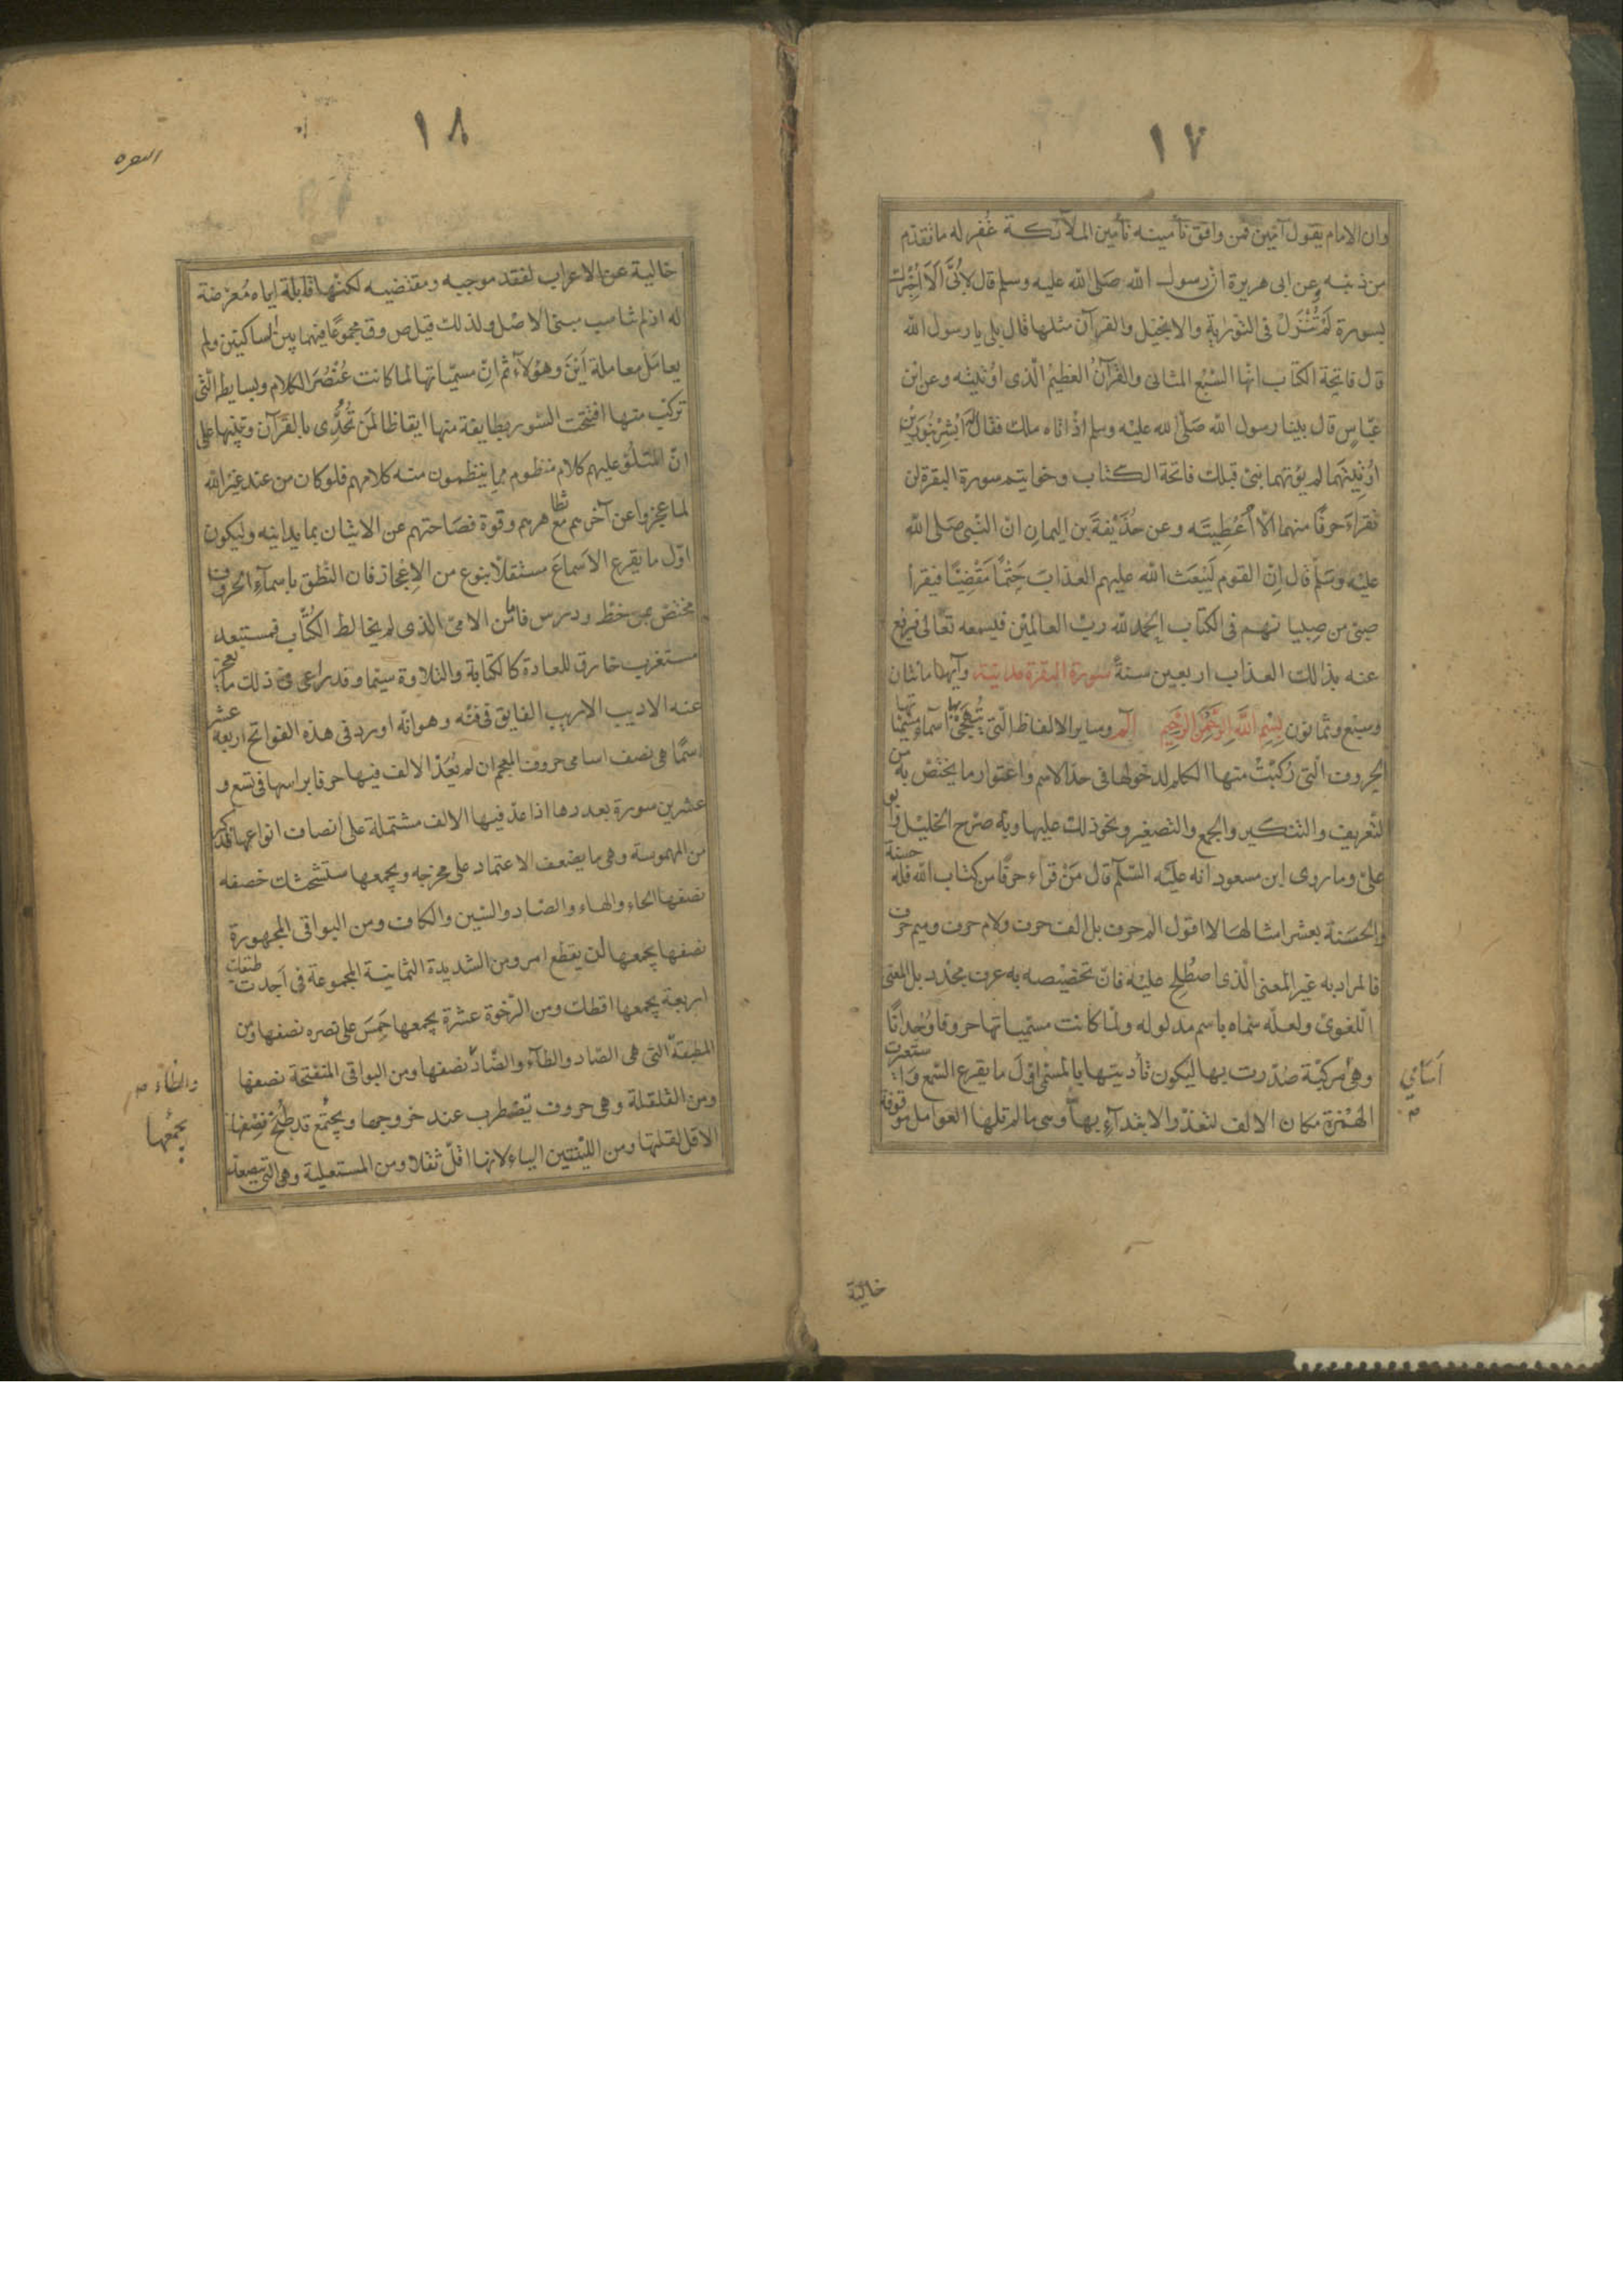 ١٧
وان الامام يقول آمين فمن وافق تأمينه تأمين الملآئكة غُفر له ما تقدّم
من ذنبه وعن ابى هريرة انّ رسول الله صَلى الله عليه وسلم قال لاُبَىّ اَلا اُخْبِرك
بسورة لَمْ تُنْزَلْ فى التوْرٰيةِ والانجيل والقرآن مثلها قال بلى يا رسول الله
قال فاتحة الكتاب انّها السَّبْع المثانى والقُرآنُ العَظيمُ الّذى اوُتيتُه وعن ابْن
عبّاسٍ قال بينا رسول الله صَلّى لله عليْه وسلم اذْ اتاه ملك فقال له اَبْشِرْ بنُورَيْن
اوُتيتَهما لم يؤتهما نبىّ قبلك فاتحة الكتاب وخواتيم سورة البقرة لن
تقراءَ حرفًا منهما الّا اُعْطِيتَه وعن حُذَيْفَةَ بن اليمانِ انّ النّبى صَلى الله
عليْه وسَلّم قال اِنّ القوم لَيَبْعَث الله عليهم العذابَ حَتْمًا مَقْضِيًا فيقرأ
صبىّ من صِبيانهم فى الكتاب الحمد لله ربّ العالمين فيسمعه تعالى فيرفع
عنه بذٰلك العذاب اربعين سنةً سُورة البقرة مدنيّة وآيها مائتان
وسبع وثمانون بِسْمِ اللّٰهِ الرَّحْمٰنِ الرَّحِيمِ الٓم وساير الالفاظ الّتى يُتهَجّىٰ بها اسمآء مسمّياتها
الحروف الّتى رُكّبَتْ منها الكلم لدخولها فى حدّ الاسم واعتوار ما يختصّ به من
التّعريف والتنكير والجمع والتصغير ونحو ذلك عليها وبه صرّح الخليل وابو
علىّ وما روى ابن مسعود انه عليْه السّلم قال مَنْ قراء حرفًا من كتاب الله فله حسنة
والحسَنة بعشر امثالهَا لا اقول الم حرف بل الف حرف ولام حرف وميم حرف
فالمراد به غير المعنى الّذى اصطُلِح عليْه فانّ تخصيْصه به عرف مجدّد بل المعنى
اللّغوىّ ولعلّه سمّاه باسم مدلوله ولمّا كانت مسمّياتها حروفا وُحْدانًا
وهى مركبّة صُدّرت بها ليكون تأديتها بالمسمّى اوّلَ ما يقرع السّمع واستعيرت
الهَمْزة مكان الالف لتعذّر الابتدآءِ بها وهى ما لم تلها العوامل موقوفة
اَسَامي
خالية
١٨
البقره
خالية عن الاعراب لفقد موجبه ومقتضيه لكنّها قابلة ايّاه مُعرّضة
له اذ لم تناسب مبنىّ الاصْل ولذلك قيل ص وق مجموعًا فيهما بين الساكنين ولم
يعامَل معاملة اَيْنَ وهؤلآءِ ثم انّ مسمّياتها لما كانت عُنْصُرَ الكلام وبسايطه الّتى
تركّب منها افتتحت السّور بطايفة منها ايقاظا لمَن تُحُدِّى بالقرآن وتنبيها على
انّ المتلُوّ عليهم كلام منظوم ممّا ينظمون منه كلامهم فلو كان من عند غيْر الله
لما عجزوا عن آخرهم مع تظاهرهم وقوة فصَاحتهم عن الاتيان بما يدانيه وليكون
اوّل ما يقرع الاَسماعَ مستقلّا بنوع من الاِعْجاز فان النّطق باسمآءِ الحروف
مختصّ بمن خطّ ودرس فاما من الامىّ الذى لم يخالط الكُتّاب فمستبعد
مستغرب خارق للعادة كالكتابة والتلاوة سيّما وقد راعى فى ذلك ما يعجز
عنه الاديب الاريب الفايق فى فنّه وهو انّه اورد فى هذه الفواتح اربعة عشر
اسمًا هى نصف اسامى حروف المعجم ان لم تُعَدّ الالف فيها حرفا براسها فى تسع و
عشرين سورة بعددها اذا عدّ فيها الالف مشتملة على اَنصاف انواعها فذكر
من المهموسة وهى ما يضعف الاعتماد على مخرجه ويجمعها ستشحثك خصفه
نصفها الحاء والهاء والصّاد والسّين والكاف ومن البواقى المجهورة
نصفها يجمعها لن يقطع امر ومن الشديدة الثمانية المجموعة فى اَجدت طبقك
اربعة يجمعها اقطك ومن الرّخوة عشرة يجمعها حَمِسَ على نصره نصفها ومن
المطبقة التى هى الصّاد والطآء والضّاد نصفها ومن البواقى المنفتحة نصفها
ومن القلقلة وهى حروف تضطرب عند خروجها ويجتمع قد طُبجَ نصفها
الاقل لقلتها ومن الليّنتين الياء لانها اقلّ ثقلا ومن المستعلية وهى التى يتصعّد
والظاء
يجمَعُها